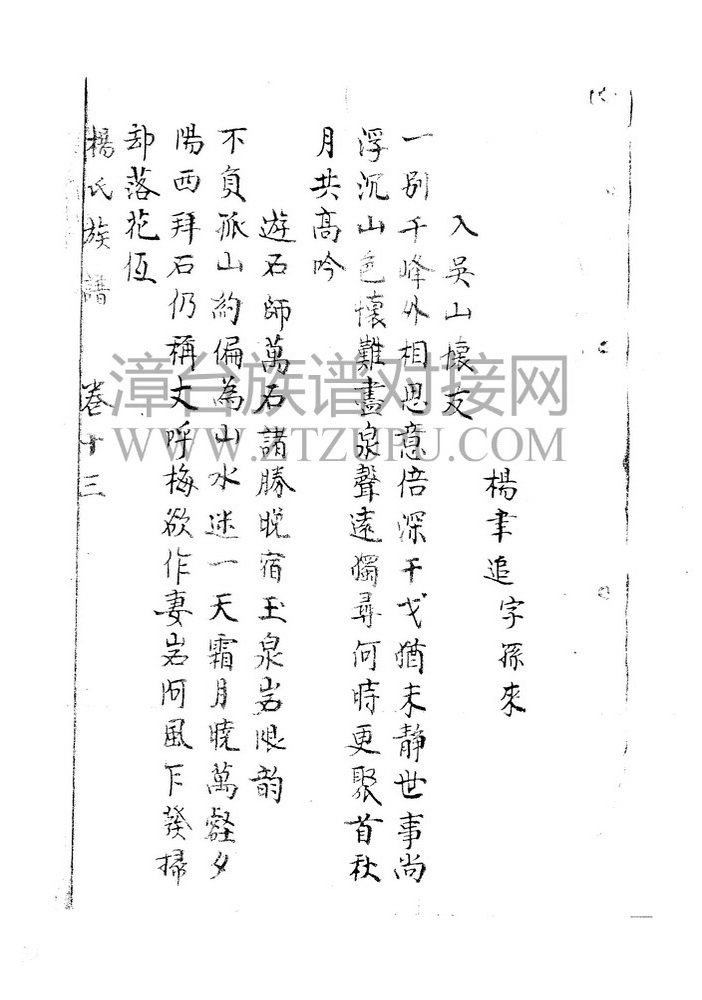 楊聿追字孫來
入吳山懷友
一別千峰外相思意倍深干戈猶未靜世事尚
浮沉山色懷難盡泉聲遠獨尋何時更聚首秋
月共高吟
遊石師萬石諸勝晚宿玉泉岩限韵
不負孤山約偏為山水迷一天霜月曉萬壑夕
陽西拜石仍稱丈呼梅欲作妻岩阿風下發掃
却落花
楊氏族譜 卷十三
漳台族谱对接网
WWW.ZTZUPU.COM